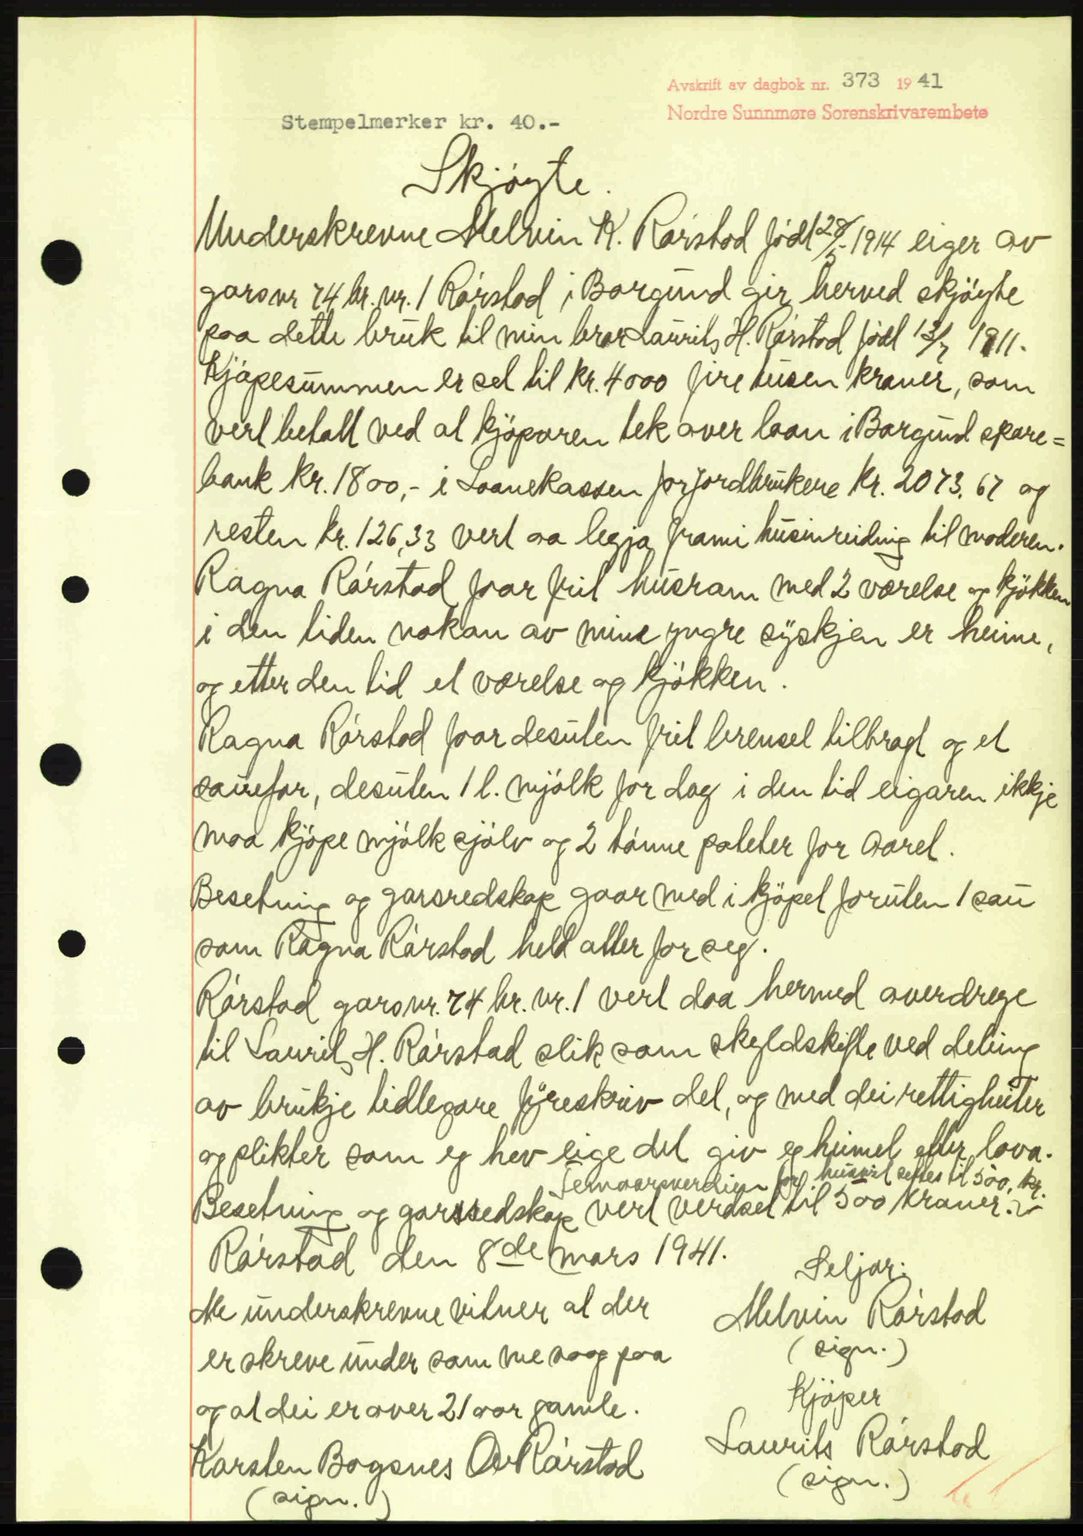 Avskrift av dagbok nr. 373 19 41
Nordre Sunnmøre Sorenskrivarembete
Stempelmerker kr. 40.-
Skjøyte.
Underskrevne Melvin K. Rørstad født 28/5-1914 eiger av
garsnr 74 br. nr. 1 Rørstad i Borgund gir herved skjøyte
paa dette bruk til min bror Laurits H. Rørstad født 13/7 1911.
Kjøpesummen er set til kr. 4000 fire tusen kroner, som
vert betalt ved at kjøparen tek over laan i Borgund spare=
bank kr. 1800,- i Laanekassen for jordbrukere kr. 2073,67 og
resten kr. 126,33 vert aa legja frami husinreiding til moderen.
Ragna Rørstad faar frit husrom med 2 værelse og kjøkken
i den tiden nokon av mine yngre syskjen er heime,
og etter den tid et værelse og kjøkken.
Ragna Rørstad faar desuten frit brensel tilbragt og et
sauefor, desuten 1 l. mjølk for dag i den tid eigaren ikkje
maa kjøpe mjølk sjølv og 2 tønne poteter for aaret.
Besetning og garsredskap gaar med i kjøpet foruten 1 sau
som Ragna Rørstad held atter for seg.
Rørstad garsnr. 74 br. nr. 1 vert daa hermed overdrege
til Laurits H. Rørstad slik som skyldskifte ved deling
av brukje tidlegare fyreskriv det, og med dei rettigheiter
og plikter som eg hev eige det giv eg heimel etter lova.
Femaarsverdien for husvit settes til 500, kr.
Besetning og garsredskap vert verdset til 500 kroner.
Rørstad den 8de mars 1941.
Seljar:
Me underskrevne vitner at der
Melvin Rørstad
er skreve under som me saag paa
(sign.)
og at dei er over 21 aar gamle.
Kjøper
Karsten Bogsnes Ov Rørstad
Laurits Rørstad
(sign.)
(sign.)